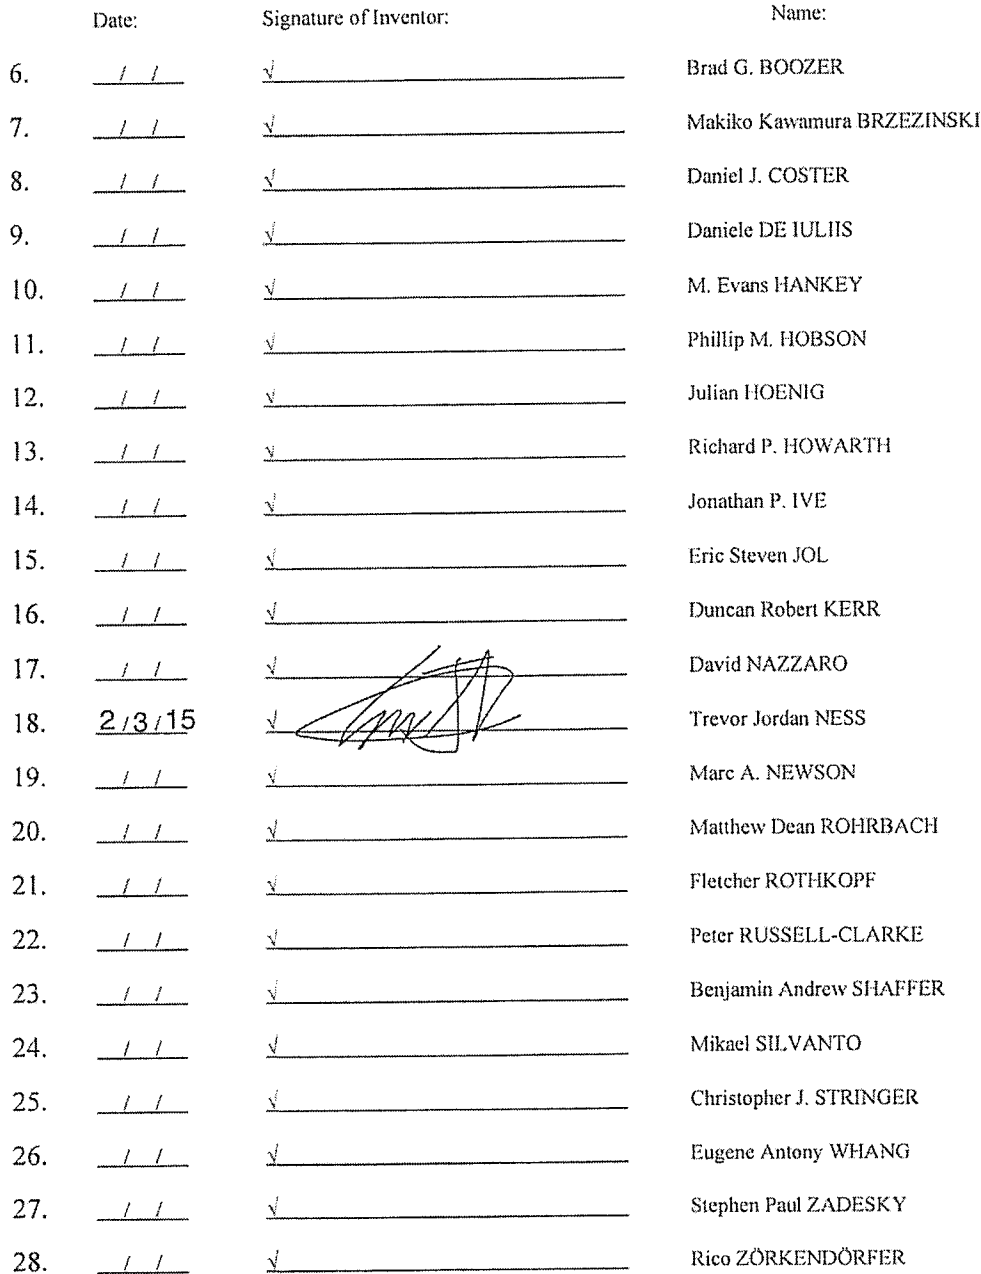 Date: Signature of Inventor: Name:
6. / / √ Brad G. BOOZER
7. / / √ Makiko Kawamura BRZEZINSKI
8. / / √ Daniel J. COSTER
9. / / √ Daniele DE IULIIS
10. / / √ M. Evans HANKEY
11. / / √ Phillip M. HOBSON
12. / / √ Julian HOENIG
13. / / √ Richard P. HOWARTH
14. / / √ Jonathan P. IVE
15. / / √ Eric Steven JOL
16. / / √ Duncan Robert KERR
17. / / √ David NAZZARO
18. 2/3/15 √ Trevor Jordan NESS
19. / / √ Marc A. NEWSON
20. / / √ Matthew Dean ROHRBACH
21. / / √ Fletcher ROTHKOPF
22. / / √ Peter RUSSELL-CLARKE
23. / / √ Benjamin Andrew SHAFFER
24. / / √ Mikael SILVANTO
25. / / √ Christopher J. STRINGER
26. / / √ Eugene Antony WHANG
27. / / √ Stephen Paul ZADESKY
28. / / √ Rico ZÖRKENDÖRFER